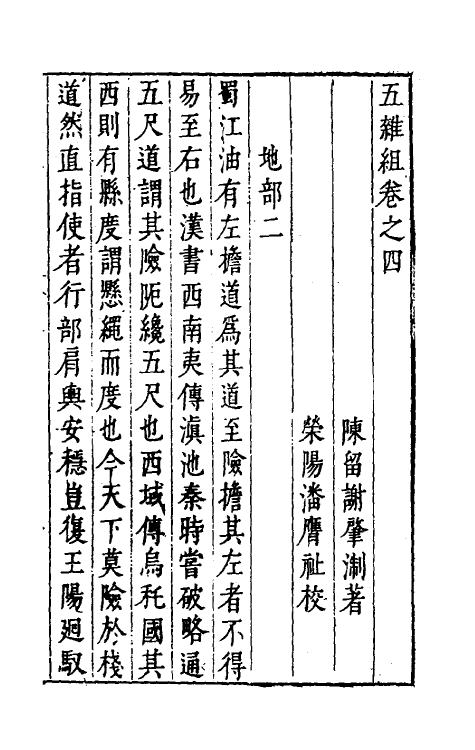 五雜組卷之四
陳留謝肇淛著
榮陽潘膺祉校
地部二
蜀江油有左擔道爲其道至險擔其左者不得
易至右也漢書西南夷傳滇池秦時嘗破略通
五尺道謂其險阨纔五尺也西域傳烏秅國其
西則有縣度謂懸繩而度也今天下莫險於棧
道然直指使者行部肩輿安穩豈復王陽廻馭